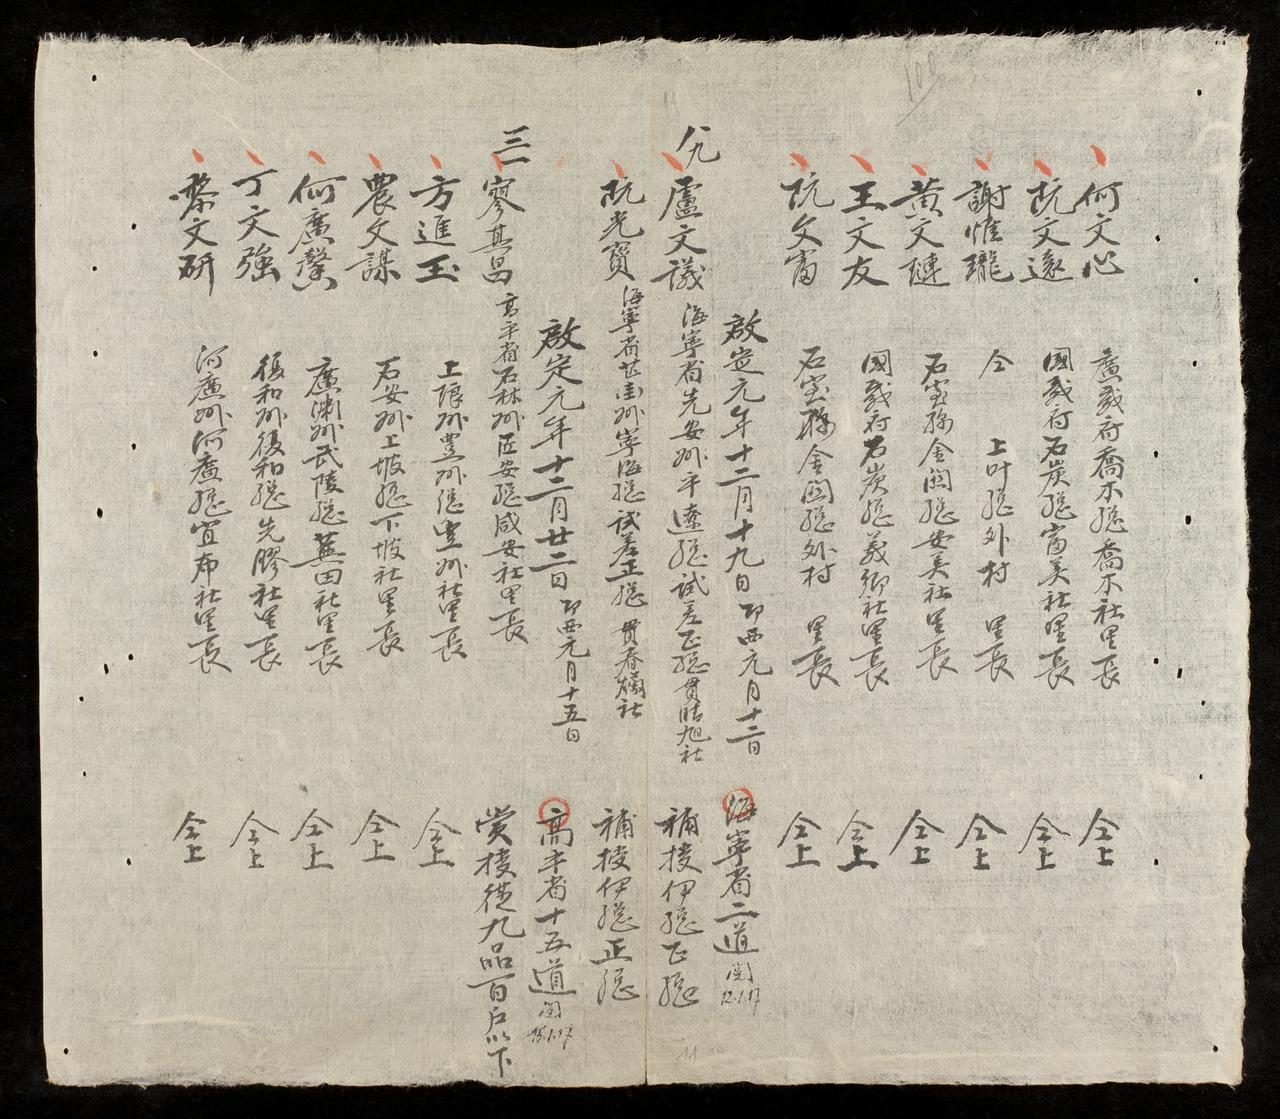 何文心 廣威府喬木總喬木社里長 仝上
阮文遠 國威府石炭總富美社里長 仝上
謝惟瓏 仝 上叶總外村 里長 仝上
黃文璉 石室縣金關總安美社里長 仝上
王文友 國威府石炭總義鄉社里長 仝上
阮文富 石室縣金關總外村 里長 仝上
啟定元年十二月十九日 即西元月十二日 海寧省二道 閏 12.1.17
八九 盧文議 海寧省先安州平遼總試差正總貫晴旭社 補授伊總正總
阮光寶 海寧省芒街州寧海總試差正總 貫春爛社 補授伊總正總
啟定元年十二月廿二日 即西元月十五日 高平省十五道 閏 15.1.17
三一 寥其昌 高平省石林州匠安總咸安社里長 賞授從九品百戶以下
方進玉 上琅州豊州總豊州社里長 仝上
農文謀 石安州上坡總下坡社里長 仝上
何廣馨 廣淵州武陵總蕪田社里長 仝上
丁文強 復和州復和總先膠社里長 仝上
黎文研 河廣州河廣總宜布社里長 仝上